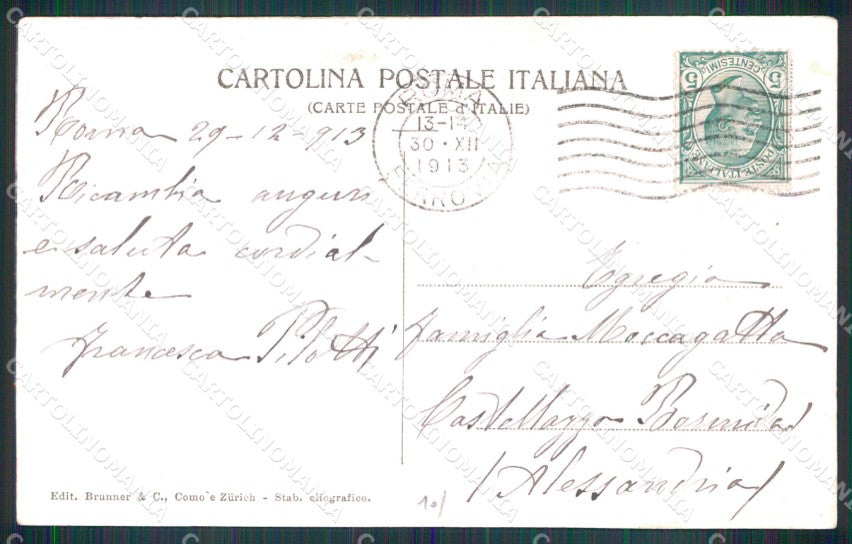 CARTOLINA POSTALE ITALIANA
(CARTE POSTALE d'ITALIE)
ROMA
13-14
30 · XII
1913
FERROVIA
5 CENTESIMI 5
POSTE ITALIANE
Roma 29-12-913
Ricambia auguri
e saluta cordial-
mente
Francesca Pilotti
Egregia
famiglia Moccagatta
Castellazzo Bormida
(Alessandria)
Edit. Brunner & C., Como e Zürich - Stab. eliografico.
10/
CARTOLINOMANIA